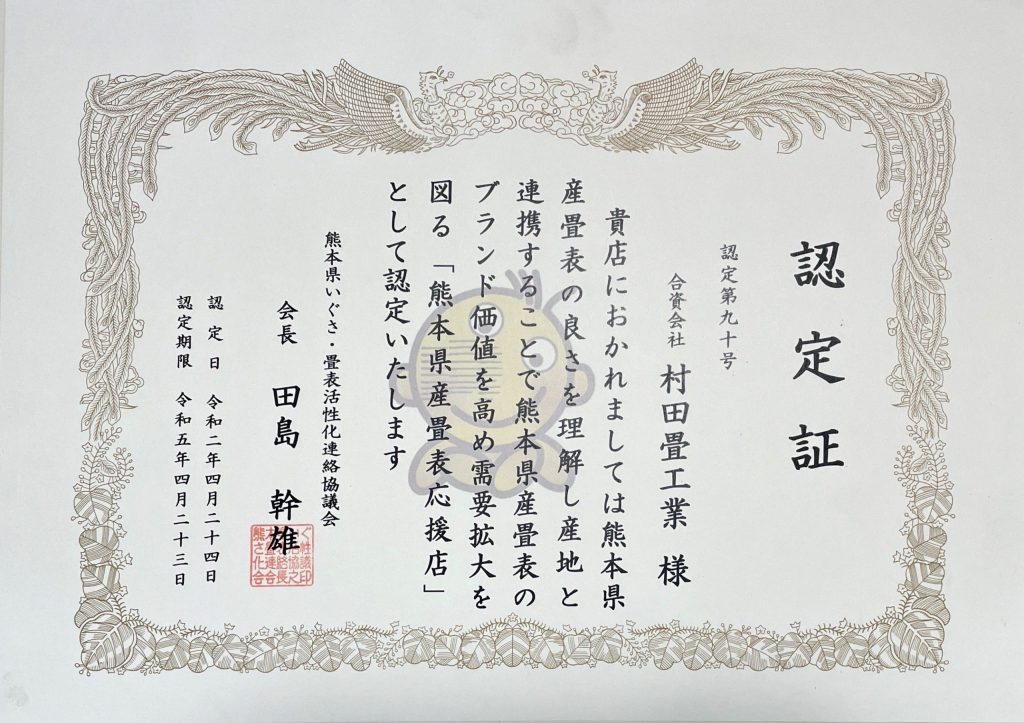 認定証
認定第九十号
合資会社 村田畳工業 様
貴店におかれましては熊本県
産畳表の良さを理解し産地と
連携することで熊本県産畳表の
ブランド価値を高め需要拡大を
図る「熊本県産畳表応援店」
として認定いたします
熊本県いぐさ・畳表活性化連絡協議会
会長 田島 幹雄
認定日 令和二年四月二十四日
認定期限 令和五年四月二十三日